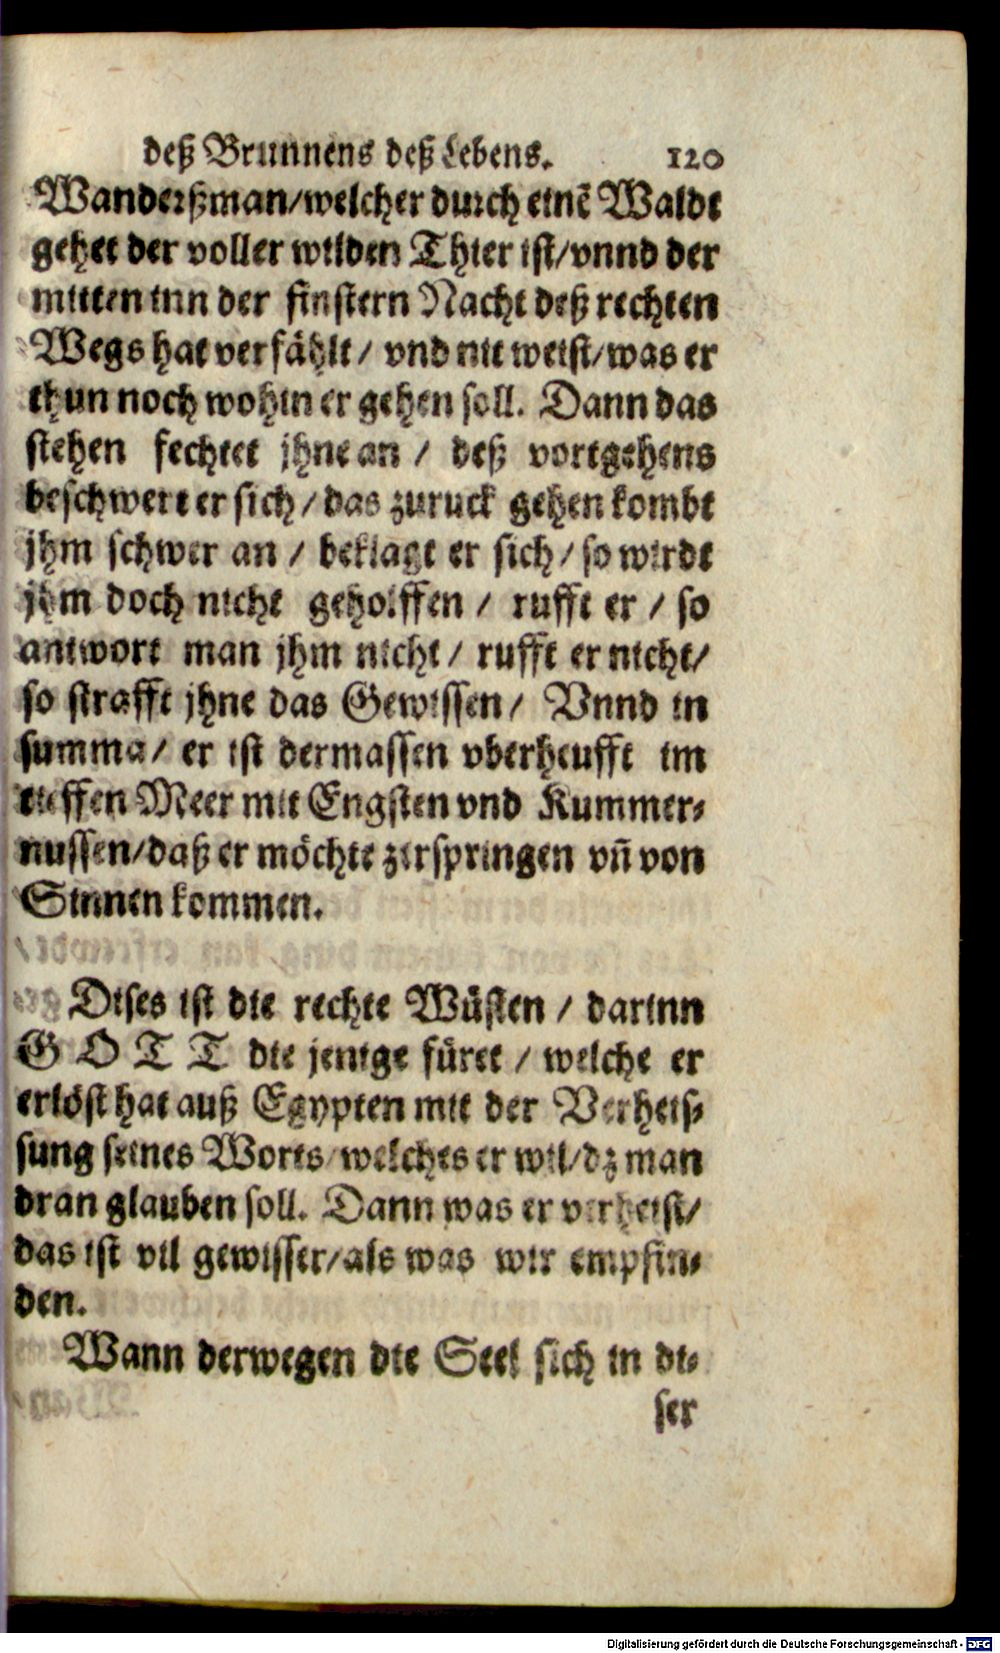 deß Brunnens deß Lebens. 120
Wanderßman/welcher durch einē Waldt
gehet der voller wilden Thier ist/vnnd der
mitten inn der finstern Nacht deß rechten
Wegs hat verfählt/ vnd nit weist/was er
thun noch wohin er gehen soll. Dann das
stehen fechtet jhne an / deß vortgehens
beschwert er sich/das zuruck gehen kombt
jhm schwer an / beklagt er sich/so wirdt
jhm doch nicht geholffen / rufft er / so
antwort man jhm nicht/ rufft er nicht/
so strafft jhne das Gewissen/ Vnnd in
summa/ er ist dermassen vberheufft im
tieffen Meer mit Engsten vnd Kummer-
nussen/daß er möchte zerspringen vñ von
Sinnen kommen.
Dises ist die rechte Wüsten / darinn
GOTT die jenige füret / welche er
erlöst hat auß Egypten mit der Verheis-
sung seines Worts/welches er wil/dz man
dran glauben soll. Dann was er verheist/
das ist vil gewisser/als was wir empfin-
den.
Wann derwegen die Seel sich in di-
ser
Digitalisierung gefördert durch die Deutsche Forschungsgemeinschaft - DFG